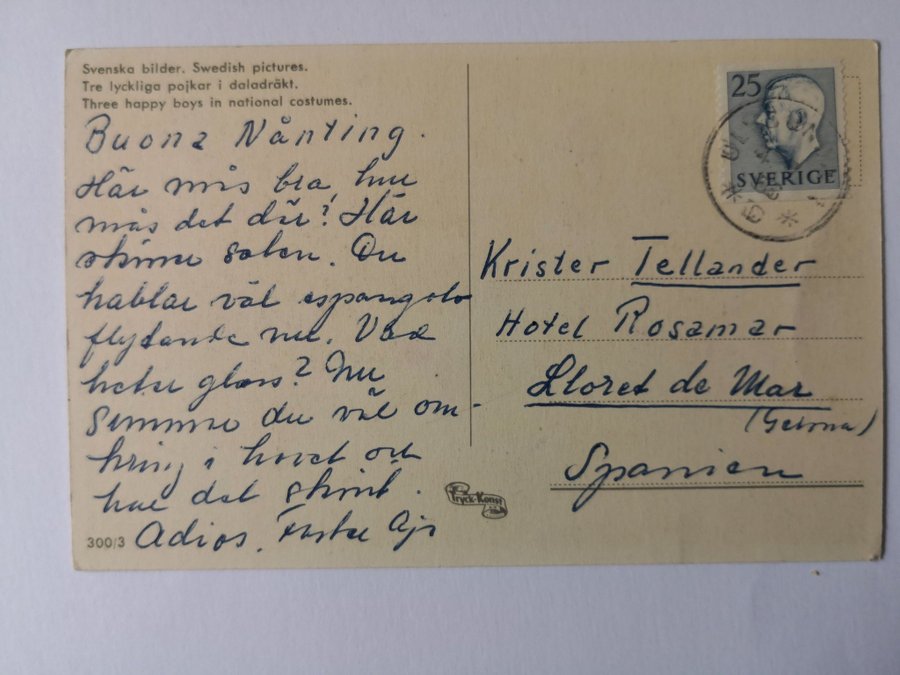 Svenska bilder. Swedish pictures.
Tre lyckliga pojkar i daladräkt.
Three happy boys in national costumes.
Buona Nånting.
Här mås bra, hur
mås det där? Här
skiner solen. Du
hablar väl espangolo
flytande nu. Vad
heter glass? Nu
simmar du väl om-
kring i havet och
har det skönt.
Adios. Faster
300/3
Tryck-Konst
25
SVERIGE
Krister Tellander
Hotel Rosamar
Lloret de Mar
(Gerona)
Spanien